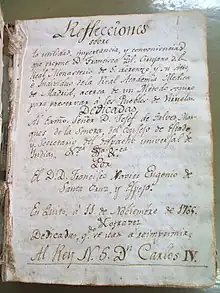 Reflecciones
sobre
la utilidad, importancia, y conveniencias
que propone Dn Francisco Gil, Cirujano del
Real Monasterio de Sn Lorenzo, y su
Individuo de la Real Academia Medica
de Madrid, acerca de un Método seguro
para preservar à los Pueblos de Viruelas
Dedicadas,
Al Exmo Señor Dn Josef de Galvez, Mar-
ques de la Sonora, del Consejo de Estado,
y Secretario del Despacho universal de
Indias,
Por
El D. D. Francisco Xavier Eugenio de
Santa Cruz, y Espejo.
En Quito, à 11 de Noviembre de 1785.
Dedicadas,
Al Rey N. S. Dn Carlos IV.